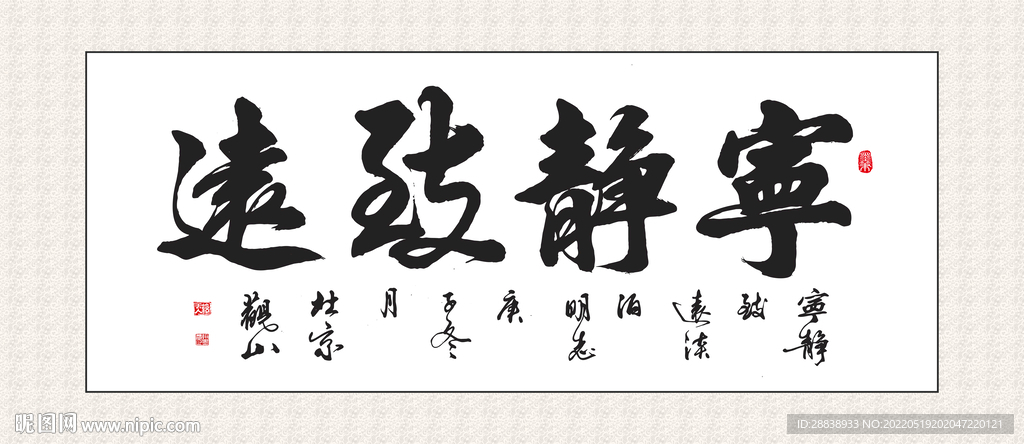 寧靜致遠
寧靜
致
遠淡
泊
明志
庚
子冬
月
杜宗
觀山
昵图网 www.nipic.com
ID:28838933 NO:20220519202047220121